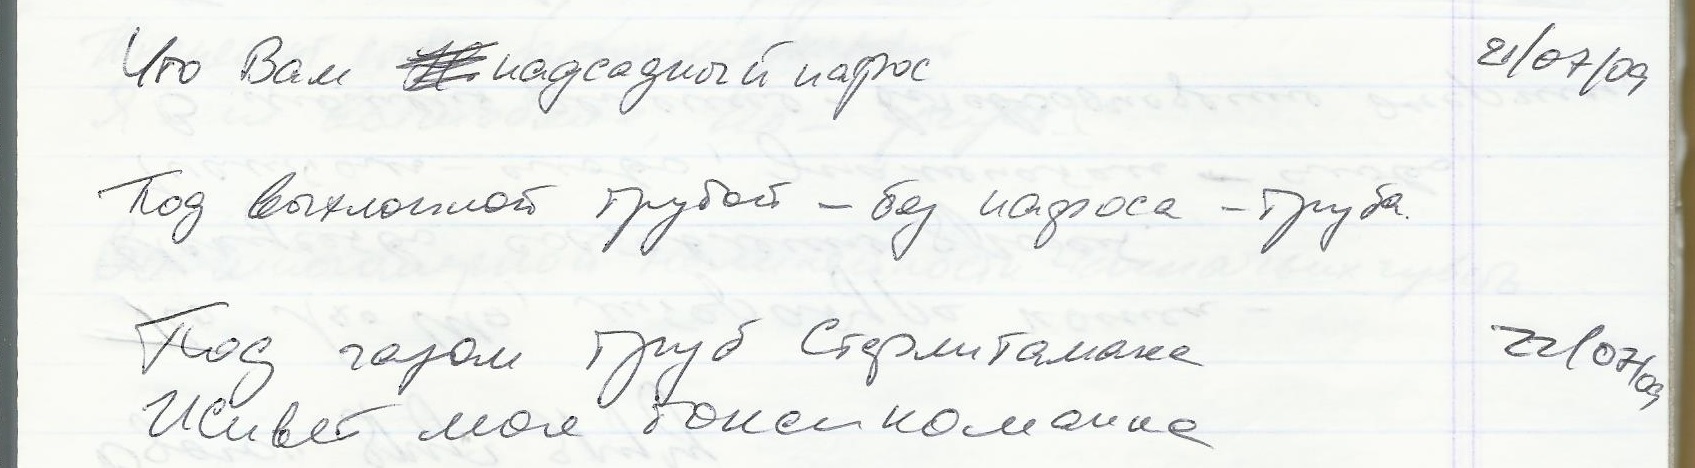 Что Вам надсадный пафос 21/07/09
Под выхлопной трубой – без пафоса – труба.
Под газом труб Стерлитамака 22/07/09
Живёт моя токсикоманка